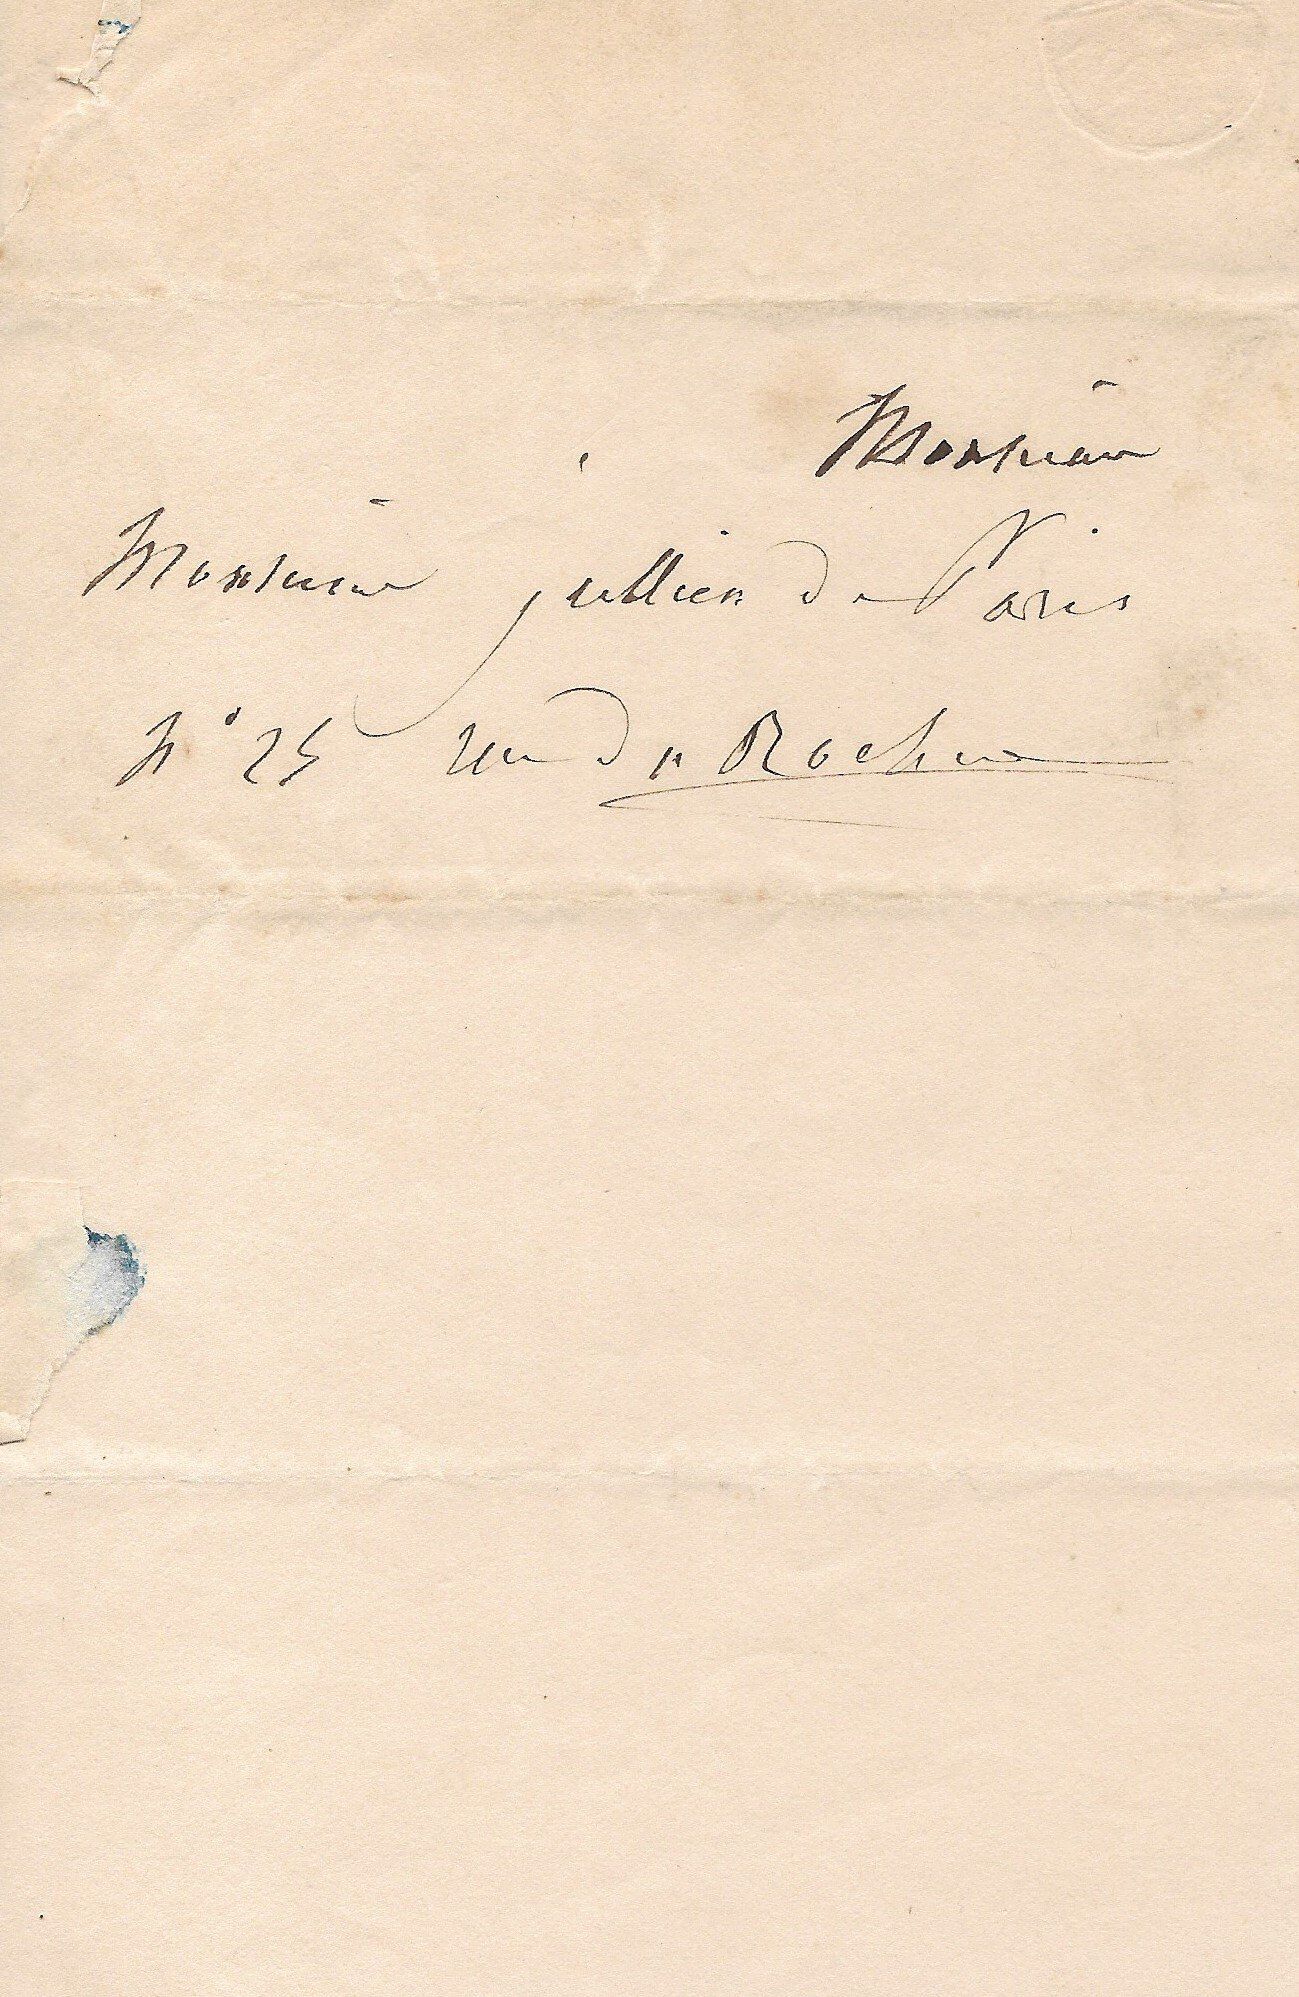 Monsieur
Monsieur jullien de Paris
N° 25 rue du Rocher